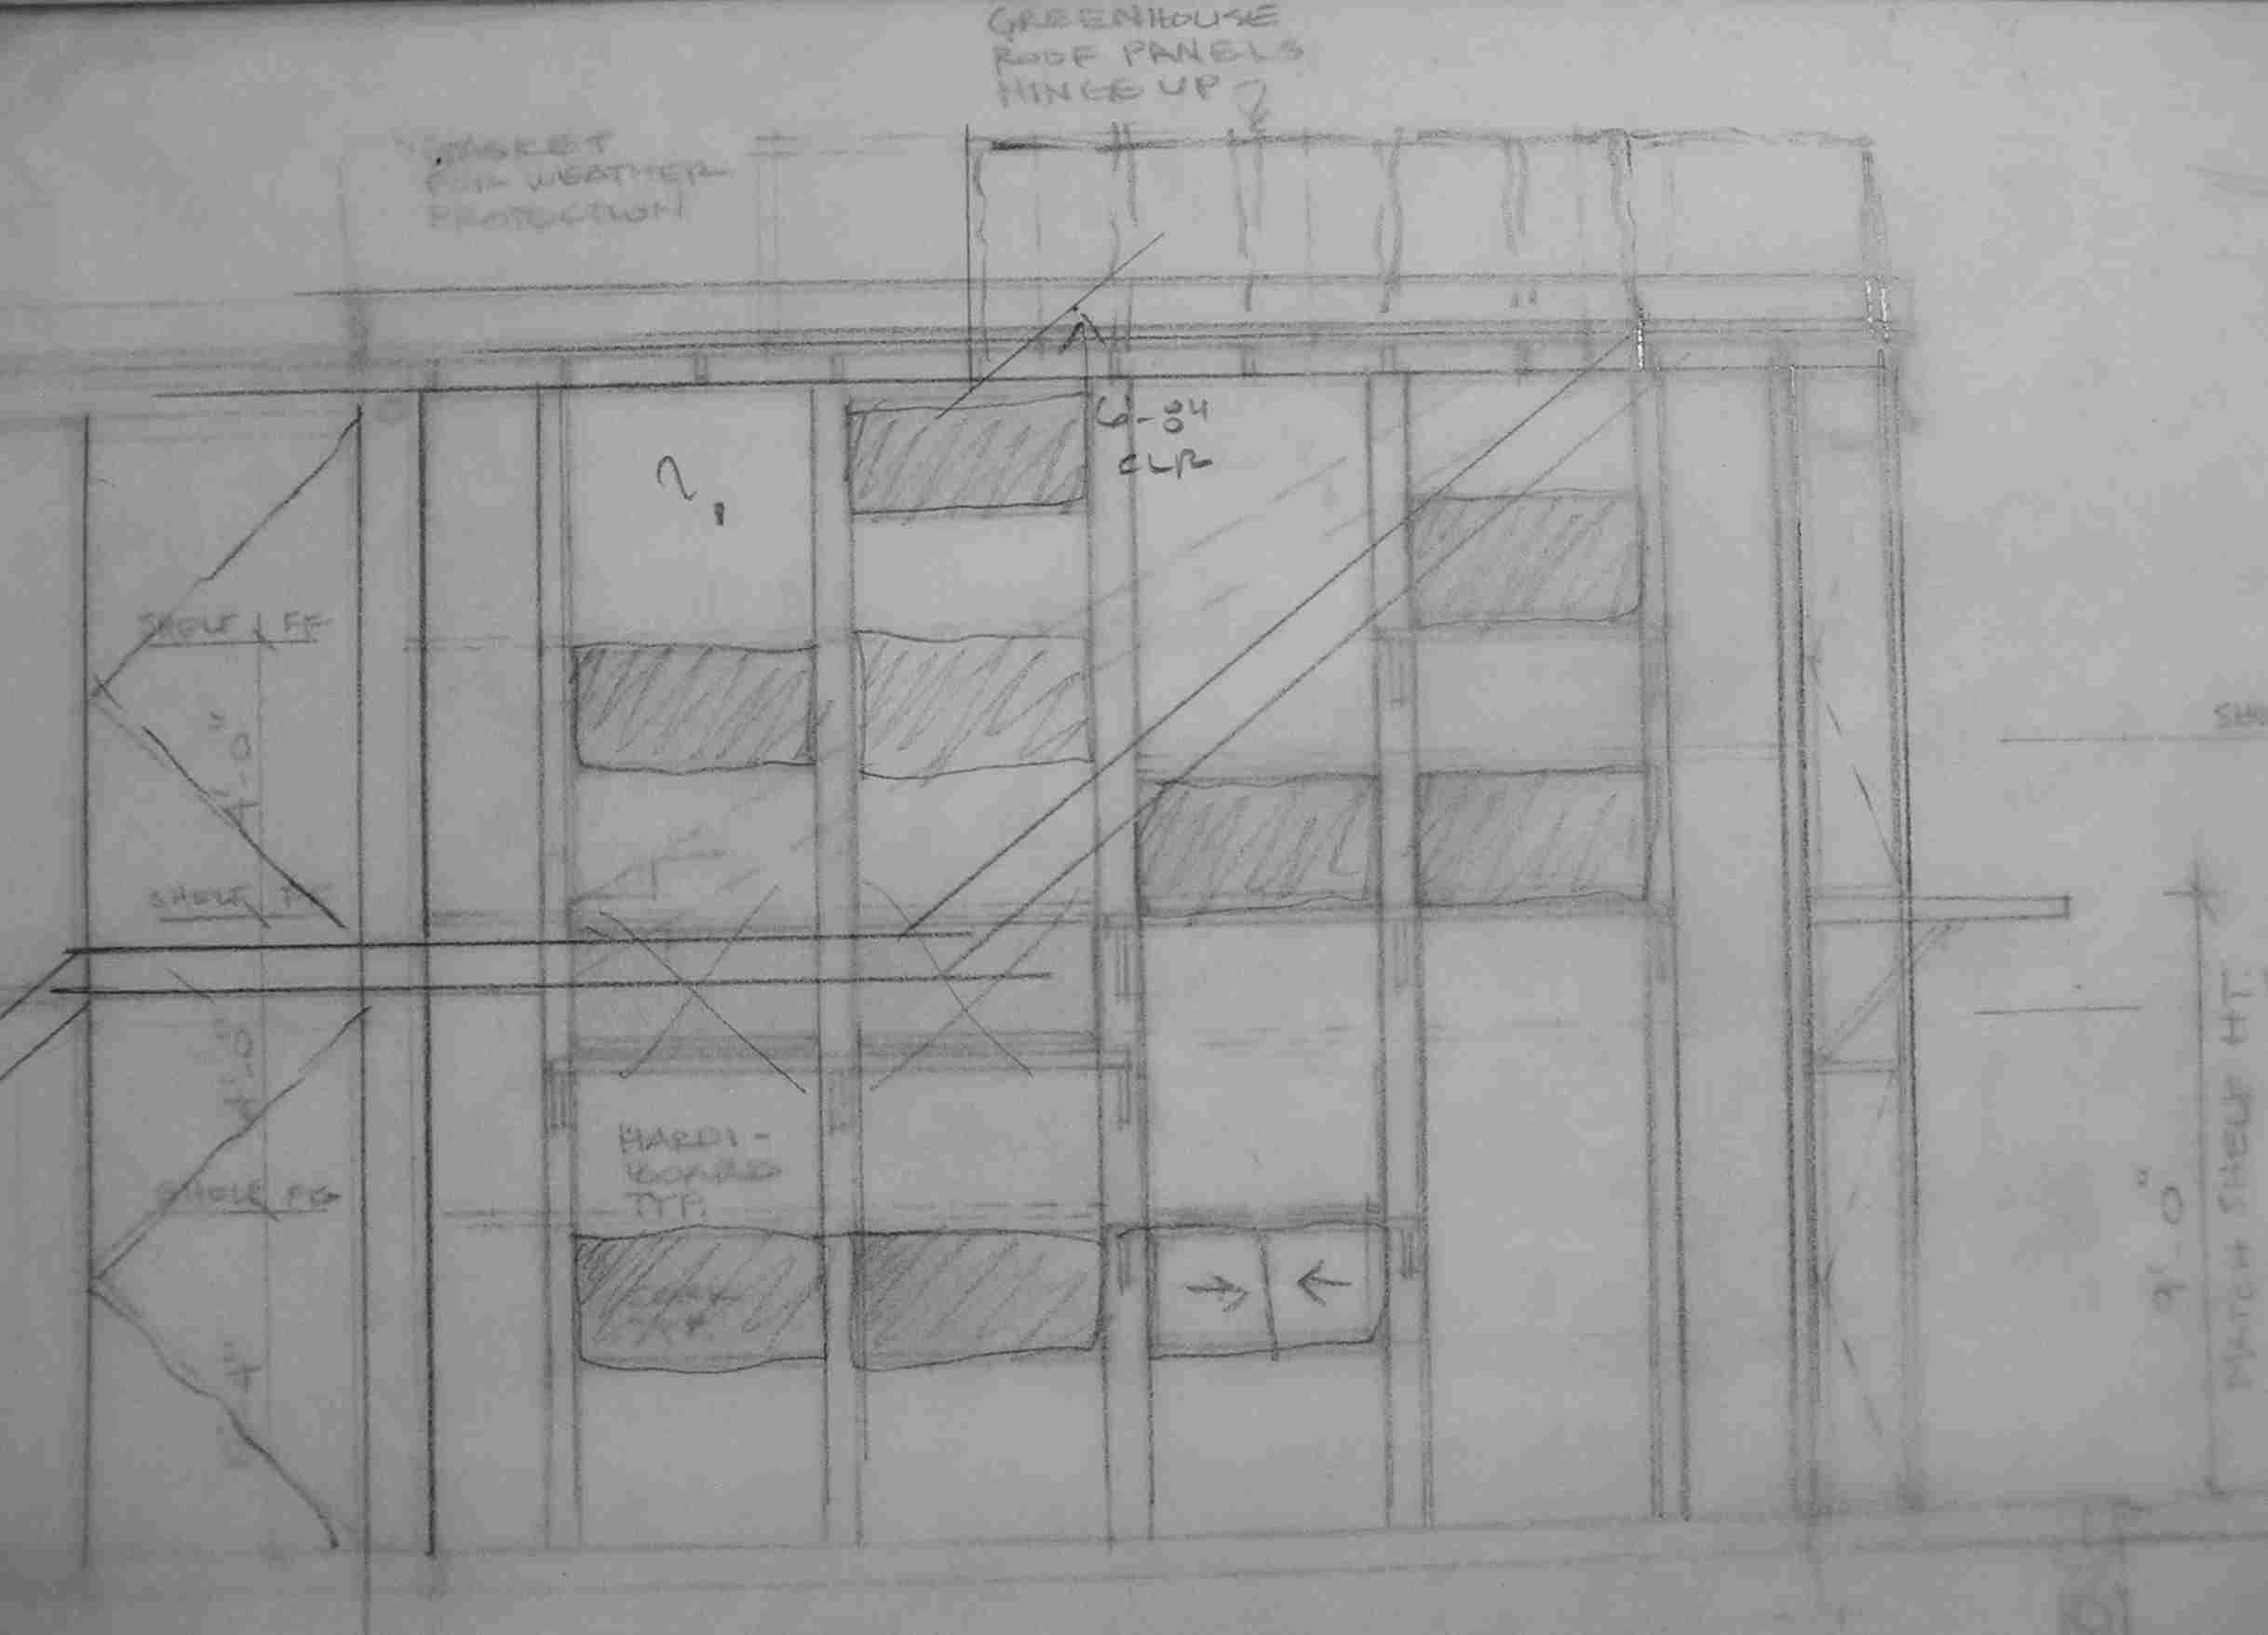 GREENHOUSE
ROOF PANELS
HINGE UP
GASKET
FOR WEATHER
PROTECTION
CLR
?
SHELF FF
4'-0"
SHELF
4'-0"
SHELF
4'
HARDI-
BOARD
TYP.
9'-0"
MATCH SHELF HT.